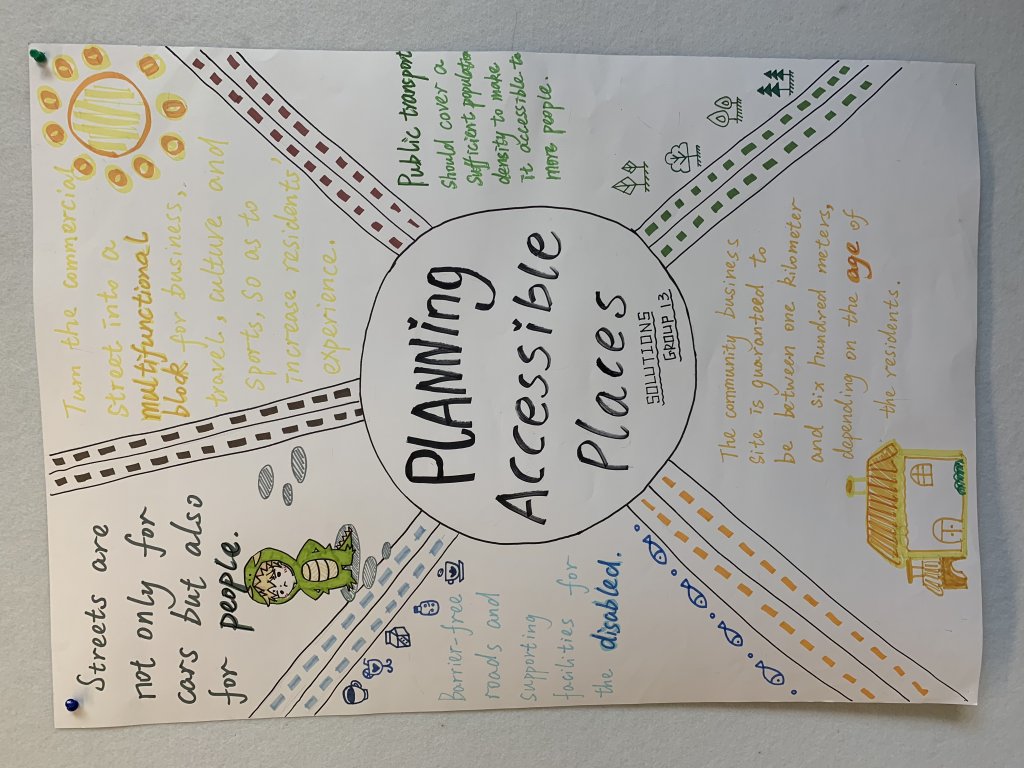 PLANNING
Accessible
Places
SOLUTIONS
GROUP 13
Streets are
not only for
cars but also
for people.
Turn the commercial
street into a
multifunctional
block for business,
travel, culture and
sports, so as to
increase residents'
experience.
Public transport
should cover a
sufficient population
density to make
it accessible to
more people.
barrier-free
roads and
supporting
facilities for
the disabled.
The community business
site is guaranteed to
be between one kilometer
and six hundred meters,
depending on the age of
the residents.